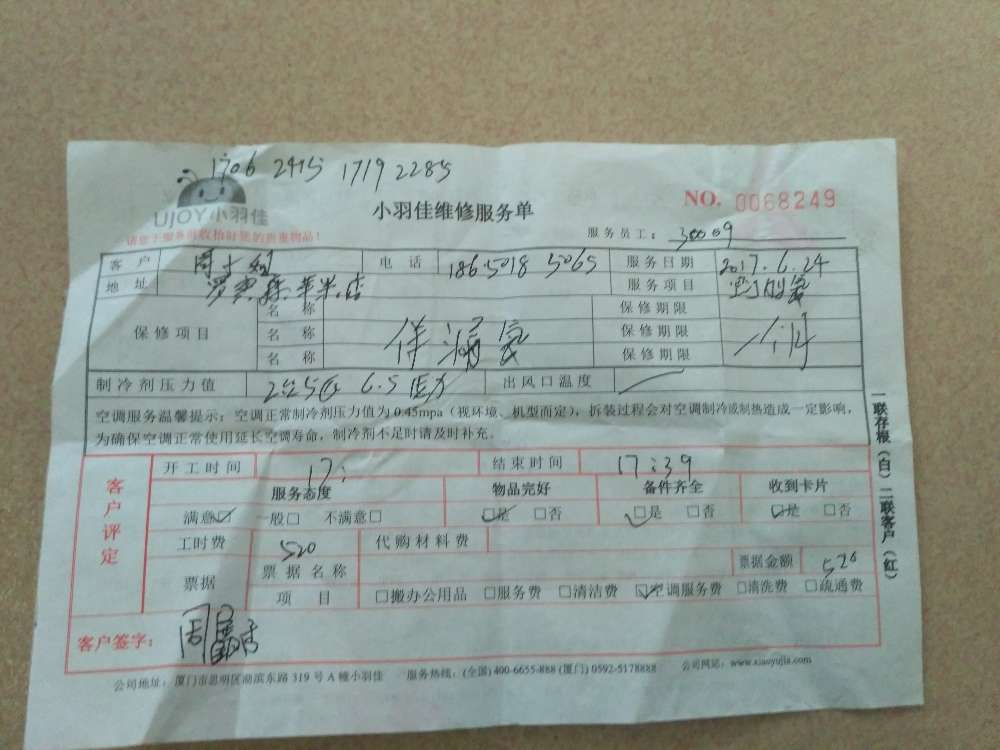 1706 2415 1719 2285
UJOY小羽佳
小羽佳维修服务单
NO. 0068249
请您于服务前收拾好您的贵重物品！
服务员工： 30009
客户 周小姐 电话 18650185065 服务日期 2017.6.24
地址 苹果店 服务项目
名称 保修期限
保修项目 名称 保修期限
名称 保修期限
制冷剂压力值 6.5 压力 出风口温度
空调服务温馨提示：空调正常制冷剂压力值为0.45mpa（视环境、机型而定），拆装过程会对空调制冷或制热造成一定影响，
为确保空调正常使用延长空调寿命，制冷剂不足时请及时补充。
一联存根（白）二联客户（红）
客户评定
开工时间 17: 结束时间 17:39
服务态度 物品完好 备件齐全 收到卡片
满意☑ 一般□ 不满意□ ☑是 □否 ☑是 □否 ☑是 □否
工时费 520 代购材料费
票据 票据名称 票据金额 520
项目 □搬办公用品 □服务费 □清洁费 ☑空调服务费 □清洗费 □疏通费
客户签字：
公司地址：厦门市思明区湖滨东路319号A幢小羽佳 服务热线：(全国)400-6655-888 (厦门) 0592-5178888 公司网站：www.xiaoyujia.com